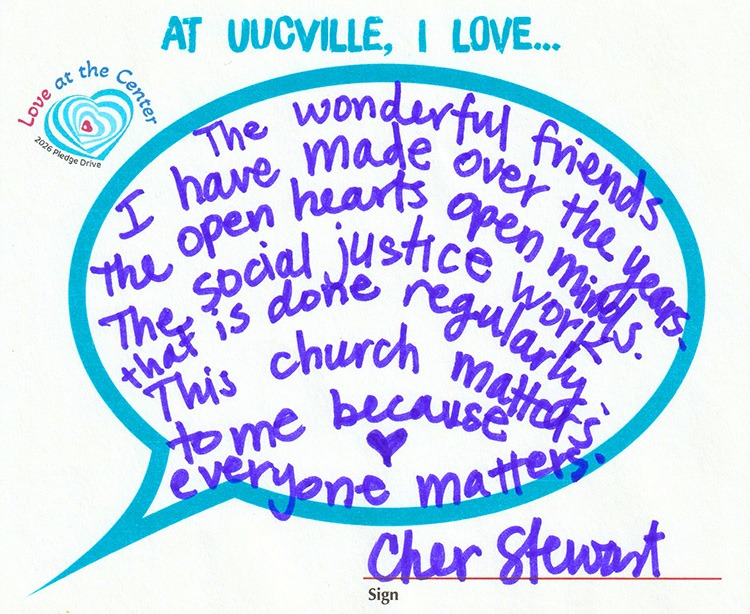 AT UUCVILLE, I LOVE...
Love at the Center
2026 Pledge Drive
The wonderful friends
I have made over the years,
the open hearts open minds.
The social justice work
that is done regularly
This church matters
to me because
everyone matters.
Cher Stewart
Sign